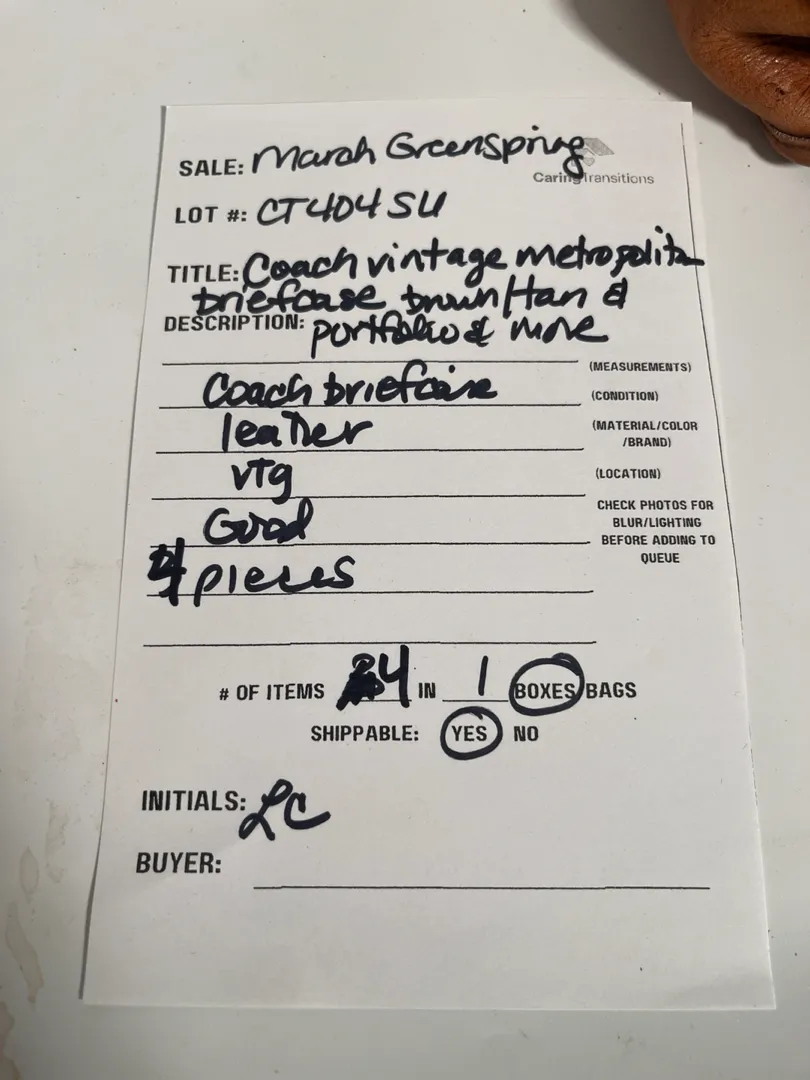 SALE: Marah Greenspring
CaringTransitions
LOT #: CT404SU
TITLE: Coach vintage metropolitan
briefcase brown/tan &
DESCRIPTION: portfolio & more
(MEASUREMENTS)
Coach briefcase (CONDITION)
leather (MATERIAL/COLOR
/BRAND)
vtg (LOCATION)
Good CHECK PHOTOS FOR
BLUR/LIGHTING
BEFORE ADDING TO
QUEUE
4 pieces
# OF ITEMS 4 IN 1 BOXES/BAGS
SHIPPABLE: YES NO
INITIALS: LC
BUYER: